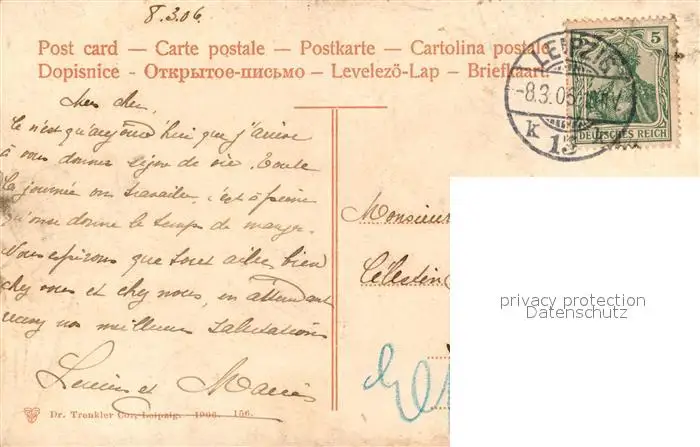 8.3.06.
Post card — Carte postale — Postkarte — Cartolina postale
Dopisnice - Открытое-письмо – Levelezö-Lap – Briefkaart
LEIPZIG
-8.3.06
K 13
5
DEUTSCHES REICH
Mes chers
Ce n'est qu'aujourd'hui que j'arrive
à vous donner signe de vie. Toute
la journée on travaille, c'est à peine
qu'on se donne le temps de manger.
Nous espérons que tout aille bien
chez vous et chez nous, en attendant
recevez nos meilleures salutations
Lucien et
Monsieur
Célestin
privacy protection
Datenschutz
Dr. Trenkler Co., Leipzig. 1906. 156.